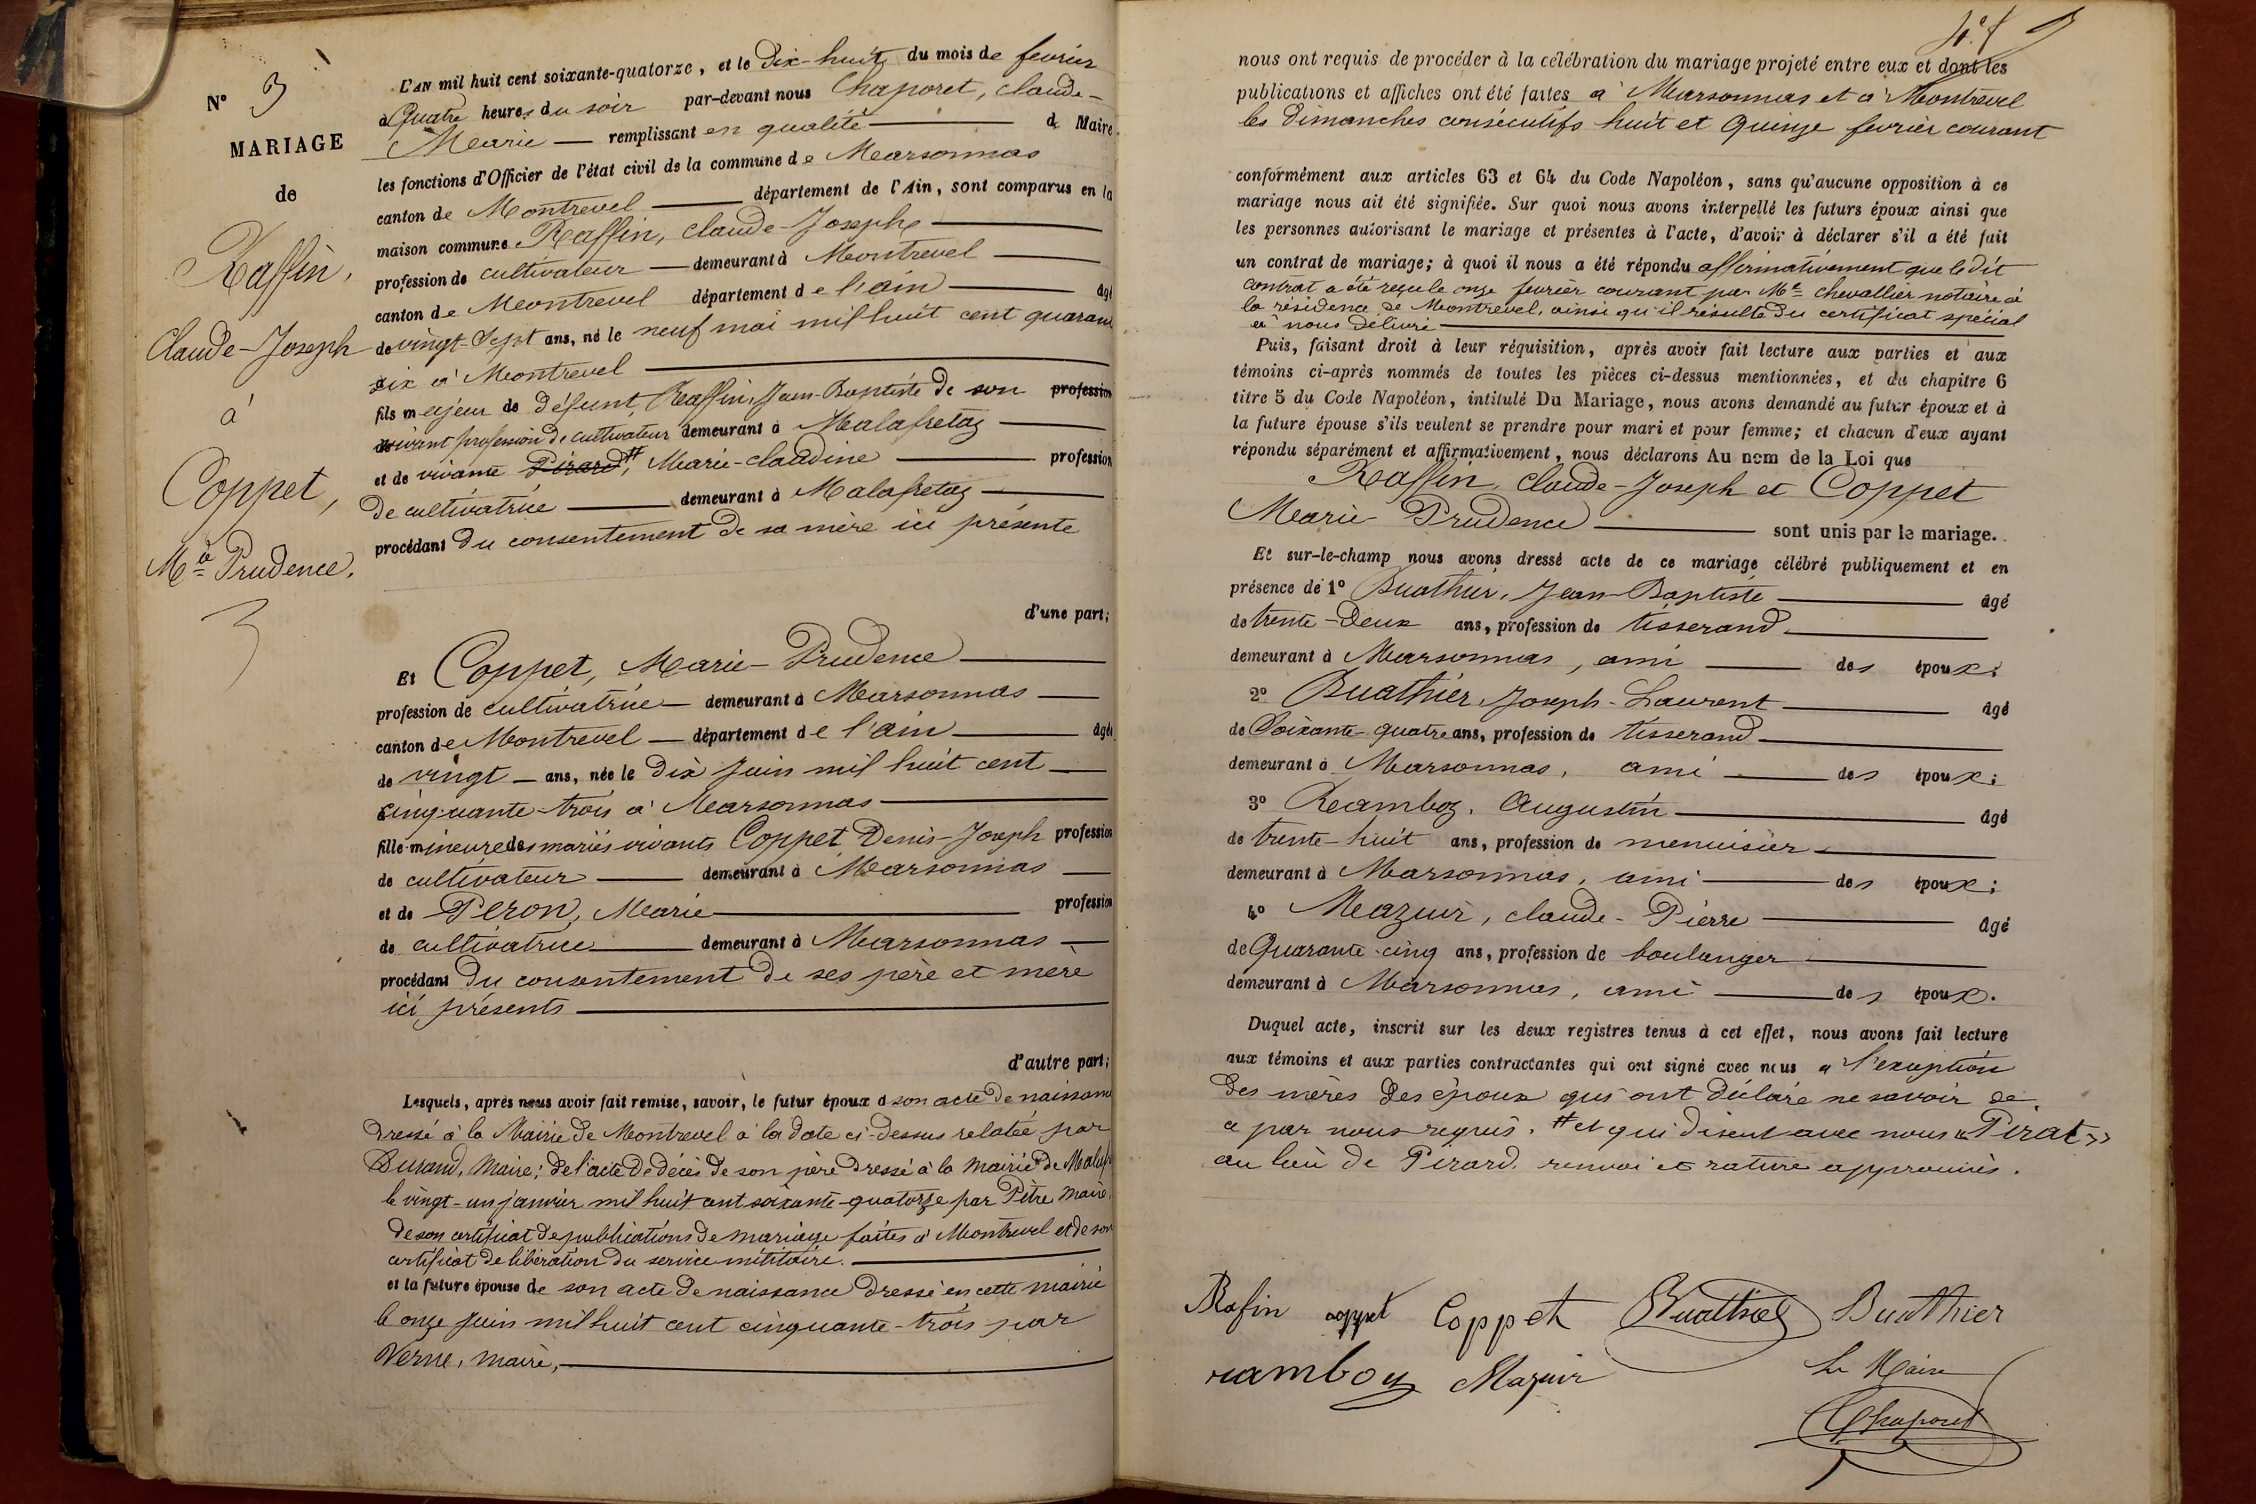 N° 3
MARIAGE
de
Raffin,
Claude-Joseph
à
Coppet,
Mie Prudence.
3
L'AN mil huit cent soixante-quatorze, et le dix-huit du mois de fevrier
à Quatre heures du soir par-devant nous Chaporet, Claude-
Marie — remplissant en qualité de Maire
les fonctions d'Officier de l'état civil de la commune de Marsonnas
canton de Montrevel département de l'Ain, sont comparus en la
maison commune Raffin, Claude-Joseph
profession de cultivateur — demeurant à Montrevel
canton de Montrevel département de l'ain âgé
de vingt-sept ans, né le neuf mai mil huit cent quarante
six à Montrevel
fils majeur de défunt, Raffin, Jean-Baptiste de son profession
vivant profession de cultivateur demeurant à Malafretaz
et de vivante Pirard, # Marie-Claudine profession
de cultivatrice demeurant à Malafretaz
procédant du consentement de sa mère ici présente
d'une part;
Et Coppet, Marie-Prudence
profession de cultivatrice — demeurant à Marsonnas
canton de Montrevel — département de l'ain âgée
de vingt — ans, née le dix Juin mil huit cent
cinquante-trois à Marsonnas
fille mineure des mariés vivants Coppet Denis-Joseph profession
de cultivateur demeurant à Marsonnas
et de Peron, Marie profession
de cultivatrice demeurant à Marsonnas
procédant du consentement de ses père et mère
ici présents
d'autre part;
Lesquels, après nous avoir fait remise, savoir, le futur époux d son acte de naissance
dressé à la Mairie de Montrevel à la date ci-dessus relatée par
Durand, Maire; de l'acte de décès de son père dressé à la mairie de Malaf
le vingt-un janvier mil huit cent soixante-quatorze par Pètre maire,
de son certificat de publications de mariage faites à Montrevel et de son
certificat de libération du service militaire.
et la future épouse de son acte de naissance dressé en cette mairie
le onze Juin mil huit cent cinquante-trois par
Verne, maire,
nous ont requis de procéder à la célébration du mariage projeté entre eux et dont les
publications et affiches ont été faites à Marsonnas et à Montrevel
les Dimanches consécutifs huit et Quinze fevrier courant
conformément aux articles 63 et 64 du Code Napoléon, sans qu'aucune opposition à ce
mariage nous ait été signifiée. Sur quoi nous avons interpellé les futurs époux ainsi que
les personnes autorisant le mariage et présentes à l'acte, d'avoir à déclarer s'il a été fait
un contrat de mariage; à quoi il nous a été répondu affirmativement que le dit
contrat a été reçu le onze fevrier courant par Me Chevallier notaire à
la résidence de Montrevel, ainsi qu'il résulte du certificat spécial
à nous délivré
Puis, faisant droit à leur réquisition, après avoir fait lecture aux parties et aux
témoins ci-après nommés de toutes les pièces ci-dessus mentionnées, et du chapitre 6
titre 5 du Code Napoléon, intitulé Du Mariage, nous avons demandé au futur époux et à
la future épouse s'ils veulent se prendre pour mari et pour femme; et chacun d'eux ayant
répondu séparément et affirmativement, nous déclarons Au nom de la Loi que
Raffin, Claude-Joseph et Coppet
Marie-Prudence sont unis par le mariage.
Et sur-le-champ nous avons dressé acte de ce mariage célébré publiquement et en
présence de 1° Buathier, Jean-Baptiste âgé
de trente-deux ans, profession de tisserand
demeurant à Marsonnas, ami des époux;
2° Buathier, Joseph-Laurent âgé
de Soixante-quatre ans, profession de tisserand
demeurant à Marsonnas, ami des époux;
3° Ramboz, Augustin âgé
de trente-huit ans, profession de menuisier
demeurant à Marsonnas, ami des époux;
4° Mazuir, Claude-Pierre âgé
de Quarante-cinq ans, profession de boulanger
demeurant à Marsonnas, ami des époux.
Duquel acte, inscrit sur les deux registres tenus à cet effet, nous avons fait lecture
aux témoins et aux parties contractantes qui ont signé avec nous à l'exception
des mères des époux qui ont déclaré ne savoir de
ce par nous requis. # et qui disent avec nous «Pirat»
au lieu de Pirard. renvoi et rature approuvés.
Rafin coppet Coppet Buathier Buathier
ramboz Mazuir Le Maire
Chaporet